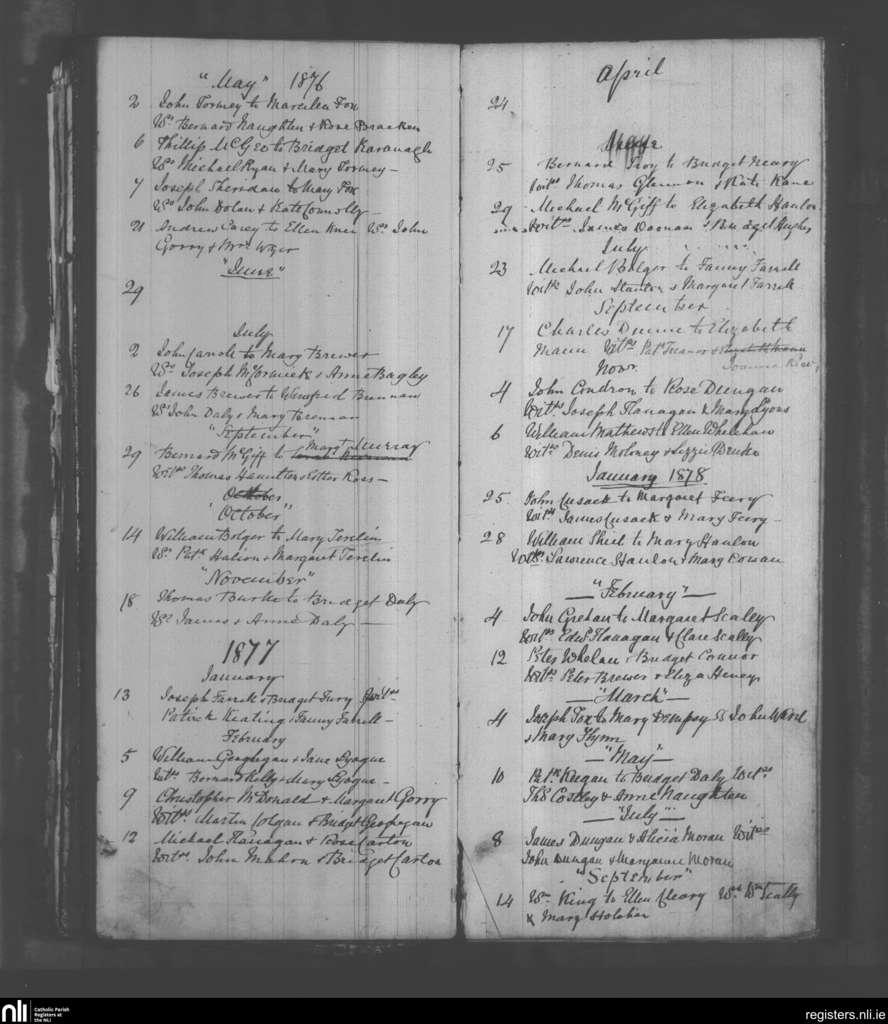 "May" 1876
2 John Tormey to Marcella Fox
Ws. Bernard Naughten & Rose Bracken
6 Phillip McGeo to Bridget Kavanagh
Ws Michael Ryan & Mary Tormey –
7 Joseph Sheridan to Mary Fox
Ws John Dolan & Kate Connolly –
21 Andrew Carey to Ellen Ws. John
Gorry & Mrs
"June"
29
July
2 John to Mary Brewer
Ws. Joseph McCormick & Anne Bagley
26 James Brewer to Winifred Brennan
Ws John Daly & Mary Brennan
"September"
Mary Murray
29 Bernard McGiff to
Wits Thomas & Esther Ross –
October
"October"
14 William Bolger to Mary Terelin
Ws. Patk & Margaret Terelin
"November"
18 Thomas Burke to Bridget Daly
Ws James & Anne Daly –
1877
January
13 Joseph Farrell & Bridget Fury Wits
Patrick Keating & Fanny Farrell –
February
5 William Geoghegan & Jane
Wits Bernard Kelly & Mary –
9 Christopher McDonald & Margaret Gorry
Wits Martin Colgan & Bridget Geoghegan
12 Michael Flanagan & Rose Carton
Wits. John & Bridget Carton
April
24
25 Bernard Troy to Bridget Neary
Wits Thomas Glennon & Kate Kane
29 Michael McGiff to Elizabeth Hanlon
Wits James Doonan & Bridget Hughes
July
23 Michael Bolger to Fanny Farrell
Wits John Stanton & Margaret Farrell
September
17 Charles Dunne to Elizabeth
Mann Wits Patk Treanor &
Novr. Joanna
4 John Condron to Rose Dungan
Wits Joseph Flanagan & Mary Lyons
6 William Mathews to Ellen Whelehan
Wits Denis Moloney & Lizzie
January 1878
25 John Cusack to Margaret Feery
Wits James Cusack & Mary Feery –
28 William Shiel to Mary Hanlon
Wits. Lawrence Hanlon & Mary Cowan
– "February" –
4 John Grehan to Margaret Scaley
Wits Edwd Flanagan & Clare Scally
12 Peter Whelan & Bridget Connor
Wits. Peter Brewer & Eliza Heney
– "March" –
4 Joseph Fox to Mary Dempsy Ws John Ward
& Mary Flynn
– "May" –
10 Patk Keegan to Bridget Daly Wits.
Thos Costley & Anne Naughten
– "July" –
8 James Dungan & Alicia Moran Wits
John Dungan & Maryanne Moran
"September"
14 Wm King to Ellen Cleary Ws. Wm Scally
& Mary
nli Catholic Parish
Registers at
the NLI
registers.nli.ie